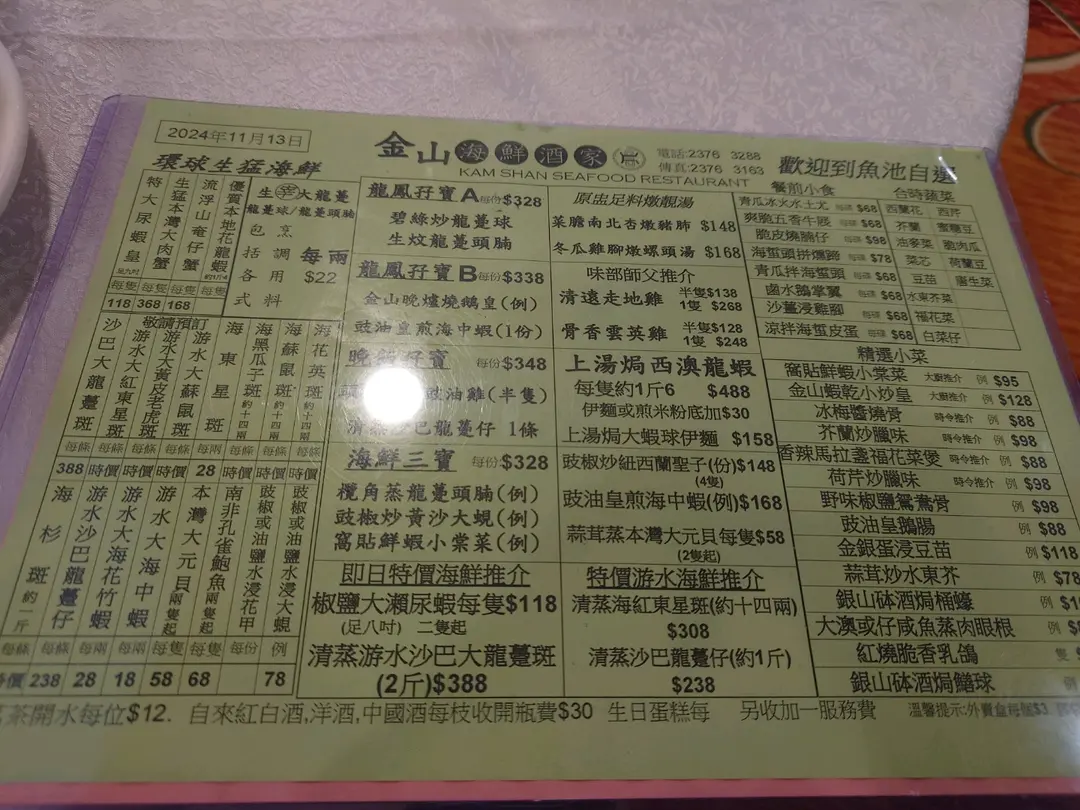 2024年11月13日
金山海鮮酒家
KAM SHAN SEAFOOD RESTAURANT
電話:2376 3288
傳真:2376 3163
歡迎到魚池自選
環球生猛海鮮
特大尿蝦皇 每隻 118
生猛本灣大肉蟹 每隻 368
流浮山奄仔蟹 每隻 168
優質本地花龍蝦 每隻
生 大龍躉
龍躉球/龍躉頭腩
包烹
括調 每兩
各用 $22
式料
敬請預訂
沙巴大龍躉斑 每條 388
游水大紅東星斑 每條 時價
游水大黃皮老虎斑 每條 時價
游水大蘇鼠斑 每條 時價
海東星斑 每兩 28
海黑瓜子斑 約十四兩 每條 時價
海蘇鼠斑 約十四兩 每條 時價
海花英斑 約十四兩 每條 時價
海杉斑 約一斤 每條
游水沙巴龍躉仔 每條 238
游水大海花竹蝦 每兩 28
游水大海中蝦 每兩 18
本灣大元貝 兩隻起 每隻 58
南非孔雀鮑魚 兩隻起 每隻 68
豉椒或油鹽水浸花甲 每份
豉椒或油鹽水浸大蜆 例 78
龍鳳孖寶A 每份$328
碧綠炒龍躉球
生炆龍躉頭腩
龍鳳孖寶B 每份$338
金山晚爐燒鵝皇(例)
豉油皇煎海中蝦(1份)
晚飯孖寶 每份$348
豉油雞(半隻)
清蒸沙巴龍躉仔 1條
海鮮三寶 每份$328
欖角蒸龍躉頭腩(例)
豉椒炒黃沙大蜆(例)
窩貼鮮蝦小棠菜(例)
即日特價海鮮推介
椒鹽大瀨尿蝦每隻$118
(足八吋) 二隻起
清蒸游水沙巴大龍躉斑
(2斤)$388
原盅足料燉靚湯
菜膽南北杏燉豬肺 $148
冬瓜雞腳燉螺頭湯 $168
味部師父推介
清遠走地雞 半隻$138
1隻 $268
骨香雲英雞 半隻$128
1隻 $248
上湯焗西澳龍蝦
每隻約1斤6 $488
伊麵或煎米粉底加$30
上湯焗大蝦球伊麵 $158
豉椒炒紐西蘭聖子(份)$148
(4隻)
豉油皇煎海中蝦(例)$168
蒜茸蒸本灣大元貝每隻$58
(2隻起)
特價游水海鮮推介
清蒸海紅東星斑(約十四兩)
$308
清蒸沙巴龍躉仔(約1斤)
$238
餐前小食
青瓜冰火水土尤 $68
爽脆五香牛𦟌 $68
脆皮燒腩仔 $98
海蜇頭拼燻蹄 $78
青瓜拌海蜇頭 $68
鹵水鵝掌翼 $68
沙薑浸雞腳 $68
涼拌海蜇皮蛋 $68
台時蔬菜
西蘭花 西芹
芥蘭 蜜糖豆
油麥菜 脆肉瓜
菜芯 荷蘭豆
豆苗 唐生菜
水東芥菜
福花菜
白菜仔
精選小菜
窩貼鮮蝦小棠菜 大廚推介 例 $95
金山蝦乾小炒皇 大廚推介 例 $128
冰梅醬燒骨 時令推介 例 $88
芥蘭炒臘味 時令推介 例 $98
香辣馬拉盞福花菜煲 時令推介 例 $88
荷芹炒臘味 時令推介 例 $98
野味椒鹽鴛鴦骨 例 $98
豉油皇鵝腸 例 $88
金銀蛋浸豆苗 例 $118
蒜茸炒水東芥 例 $78
銀山砵酒焗桶蠔 例
大澳或仔咸魚蒸肉眼根 例
紅燒脆香乳鴿 隻
銀山砵酒焗鱔球 例
茶開水每位$12. 自來紅白酒,洋酒,中國酒每枝收開瓶費$30 生日蛋糕每 另收加一服務費 溫馨提示:外賣盒每個$3.